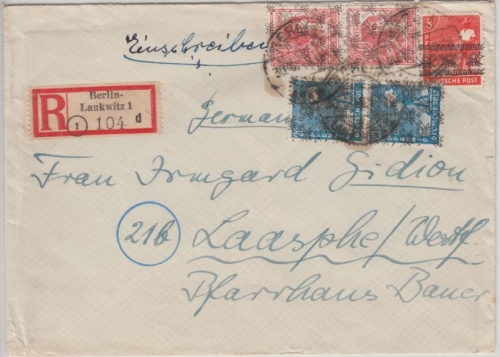 Einschreiben
8
DEUTSCHE POST
R
Berlin-
Lankwitz 1
1 104 d
Germany
Frau Irmgard Gidion
21b
Laasphe/Westf.
Pfarrhaus Bauer